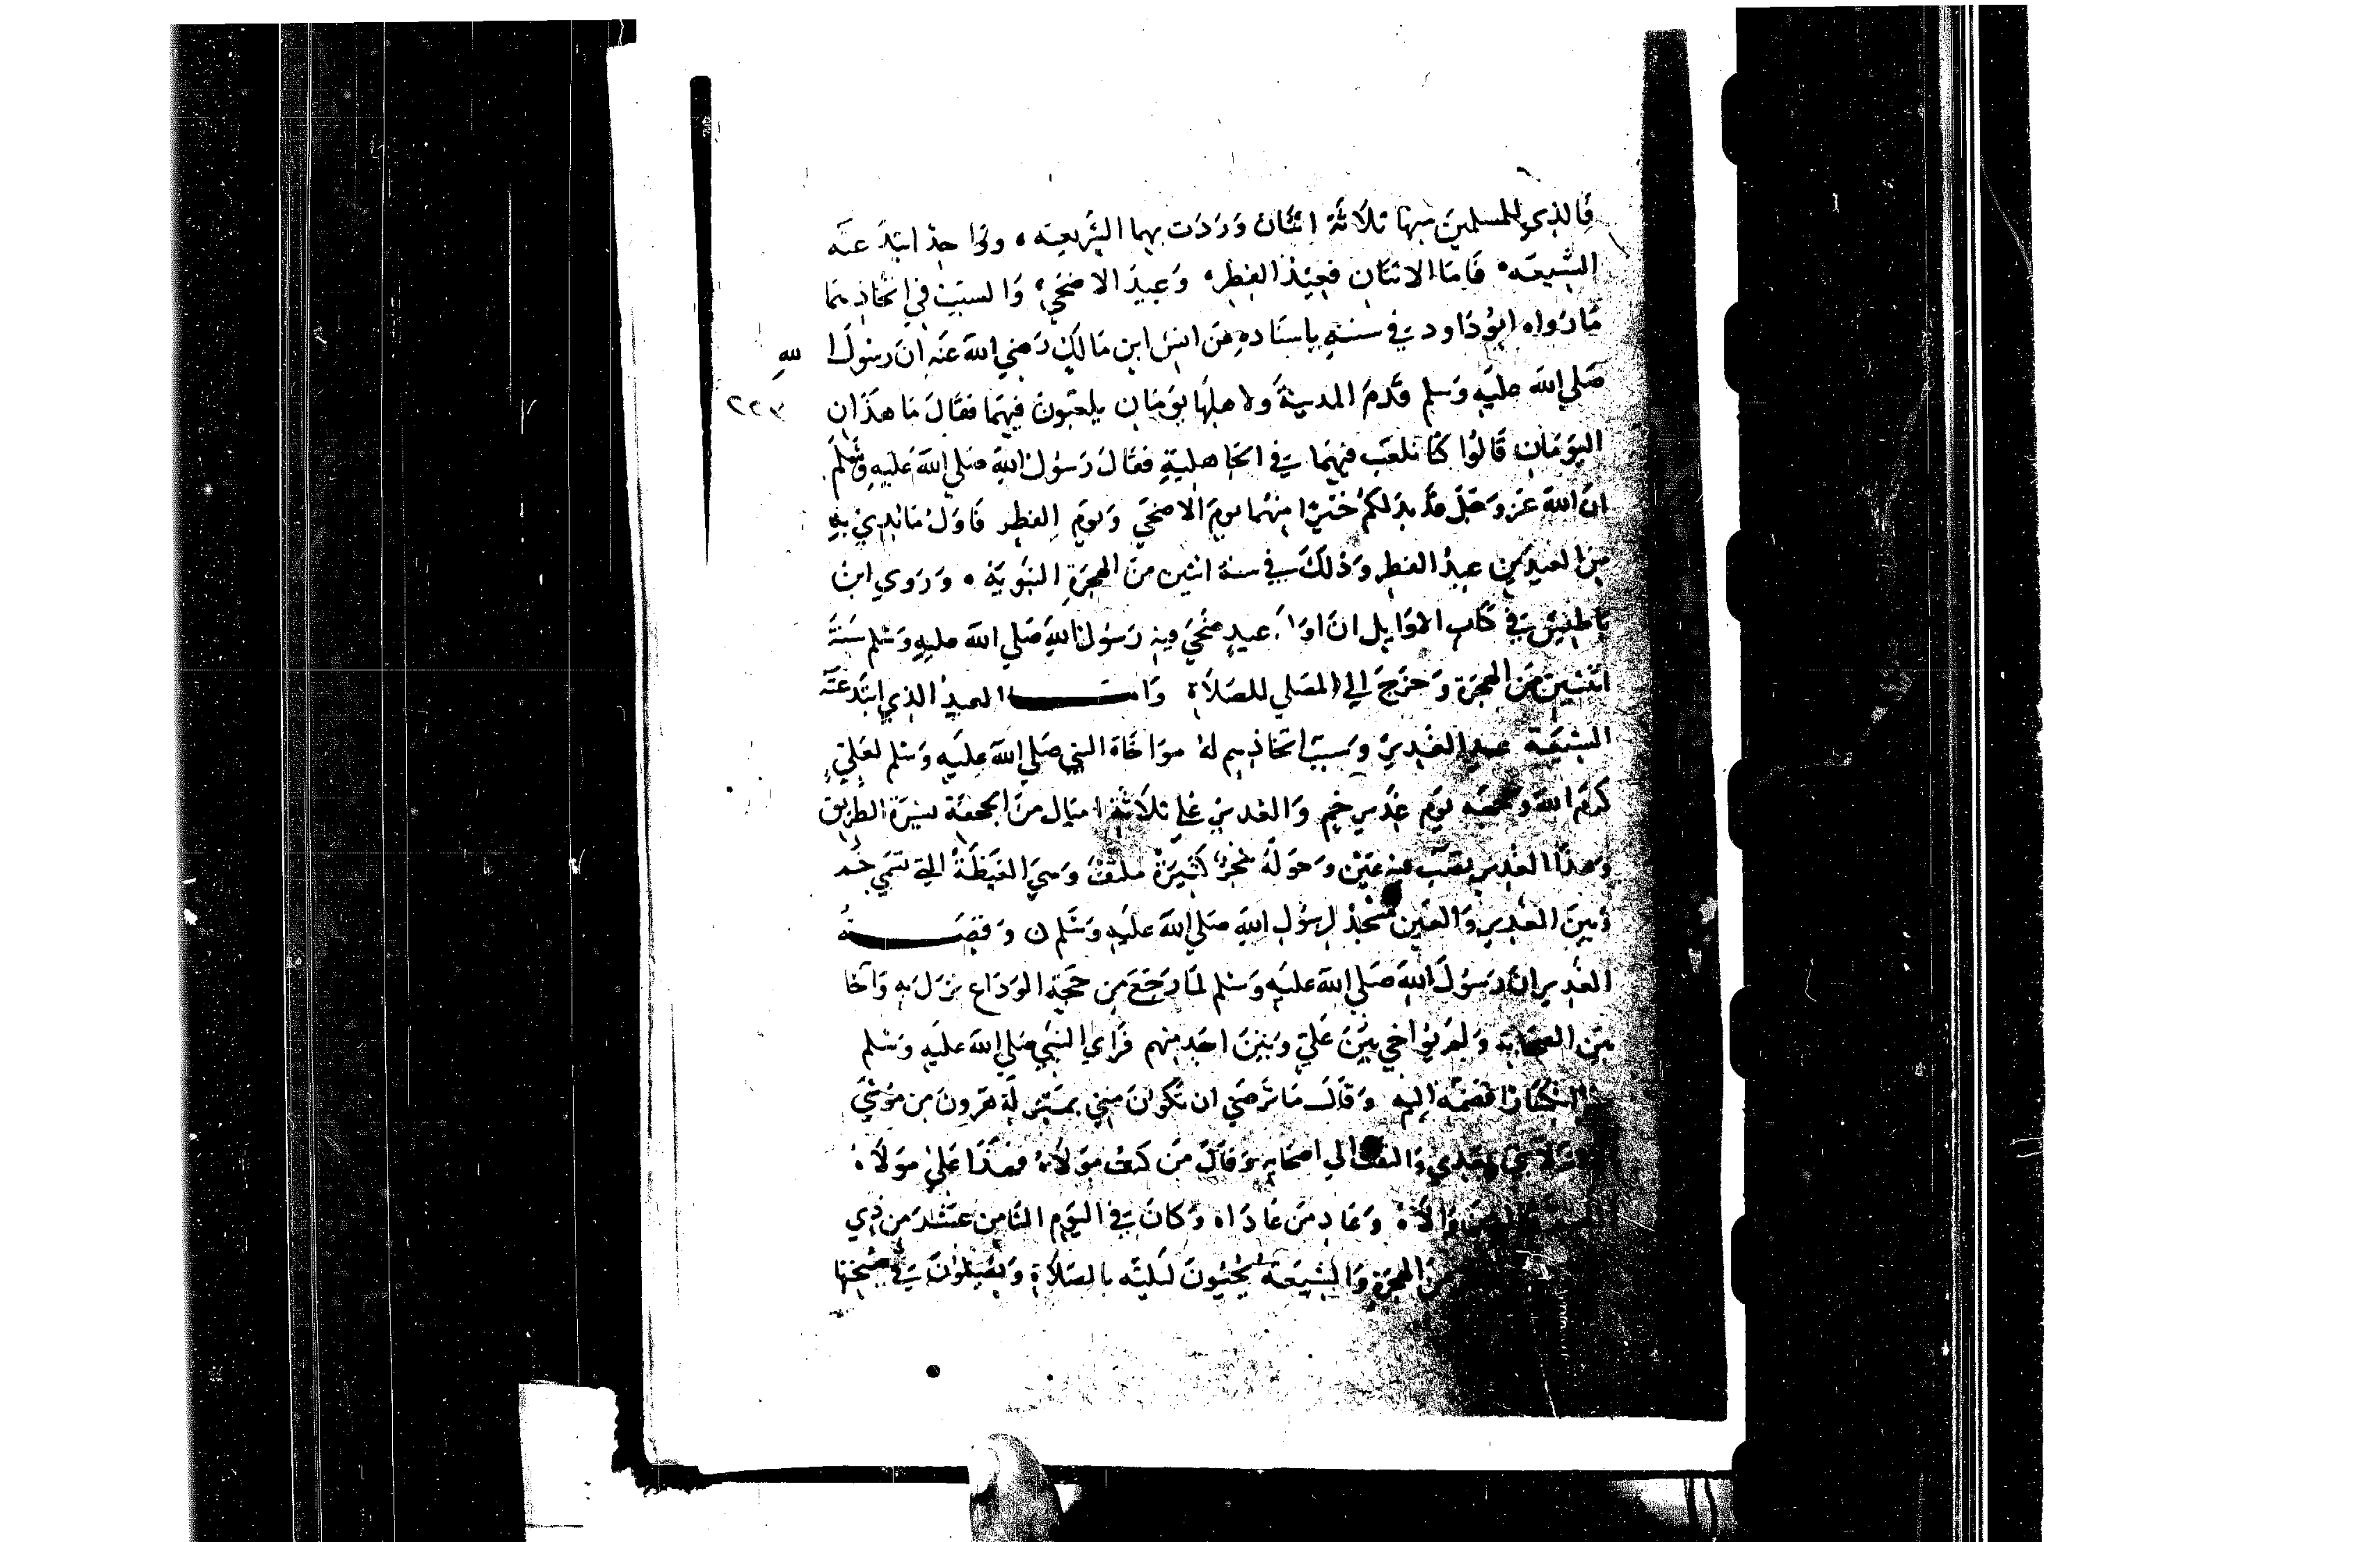 فالذي للمسلمين منها ثلاثة اثنان وردت بهما الشريعه ، وواحد ابتدعته
الشيعه ، فاما الاثنان فعيد الفطر ، وعيد الاضحي ، والسبب في اتخاذهما
ما رواه ابو داود في سننه باسناده عن انس ابن مالك رضي الله عنه ان رسول الله
صلي الله عليه وسلم قدم المدينة ولاهلها يومان يلعبون فيهما فقال ما هذان
٢٢٣
اليومان قالوا كنا نلعب فيهما في الجاهلية فقال رسول الله صلي الله عليه وسلم
ان الله عز وجل قد بدلكم خيرا منهما يوم الاضحي ويوم الفطر فاول ما بدي به
من العيدين عيد الفطر وذلك في سنة اثنين من الهجرة النبوية ، وروي ابن
باطيش في كتاب الاوايل ان اول عيد ضحي فيه رسول الله صلي الله عليه وسلم سنة
اثنتين من الهجرة وخرج الي المصلي للصلاة واما العيد الذي ابتدعته
الشيعة عيد الغدير وسبب اتخاذهم له مواخاة النبي صلي الله عليه وسلم لعلي
كرم الله وجهه يوم غدير خم والغدير علي ثلاثة اميال من الجحفة يسرة الطريق
وهذا الغدير تصب فيه عين وحوله شجر كثيرة ملتف وهي الغيظة التي تسمي خم
وبين الغدير والعين مسجد لرسول الله صلي الله عليه وسلم ن وقصة
الغدير ان رسول الله صلي الله عليه وسلم لما رجع من حجة الوداع نزل به وآخا
بين الصحابة ولم يواخي بين علي وبين احد منهم فراي النبي صلي الله عليه وسلم
انكسارا فضمه اليه وقال ما ترضي ان تكون مني بمنزلة هرون من موسي
بعدي والتفت الي اصحابه وقال من كنت مولاه فهذا علي مولاه
والاه وعاد من عاداه وكان في اليوم الثامن عشر من ذي
من الهجرة والشيعة يحيون ليلته بالصلاة ويصلون في صبحتها